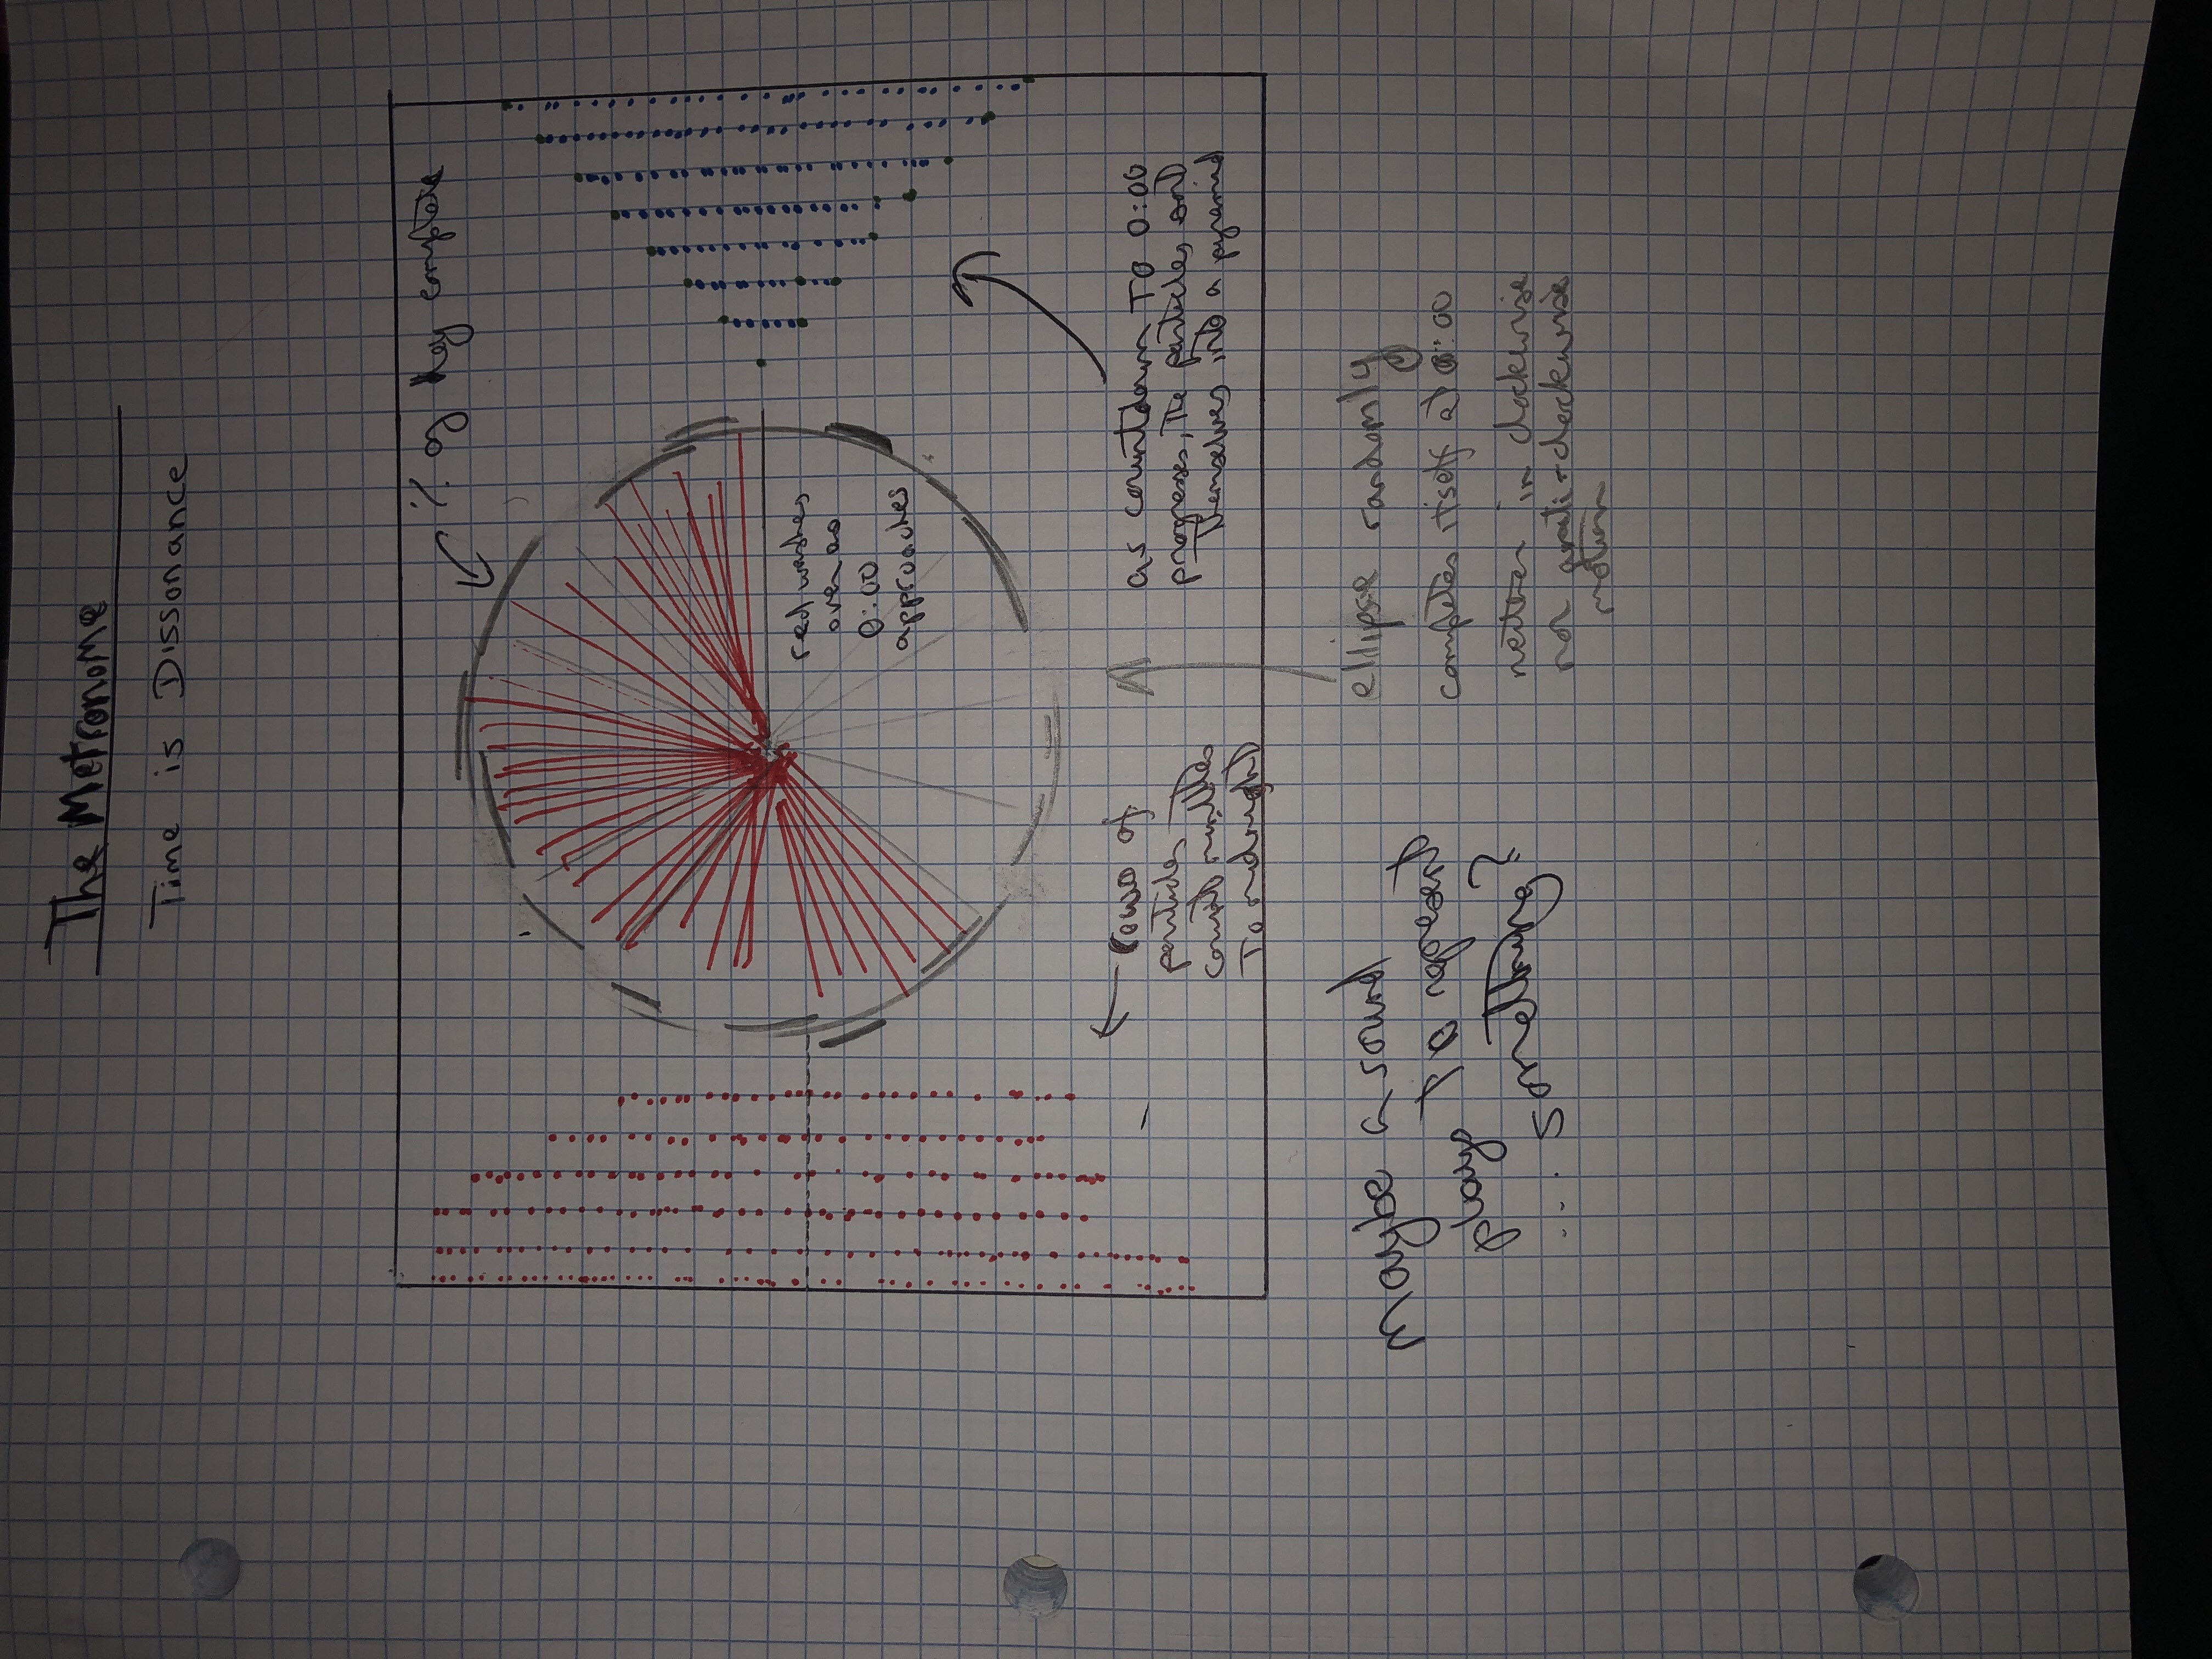 The Metronome
Time is Dissonance
% of day complete
red washes
over as
0:00
approaches
rows of
particles
count minutes
To midnight
as countdown To 0:00
progresses, The particles sort
Themselves into a pyramid
Maybe a sound
plays to represent
... something?
ellipse randomly
completes itself at 0:00
neither in clockwise
nor anti-clockwise
motion